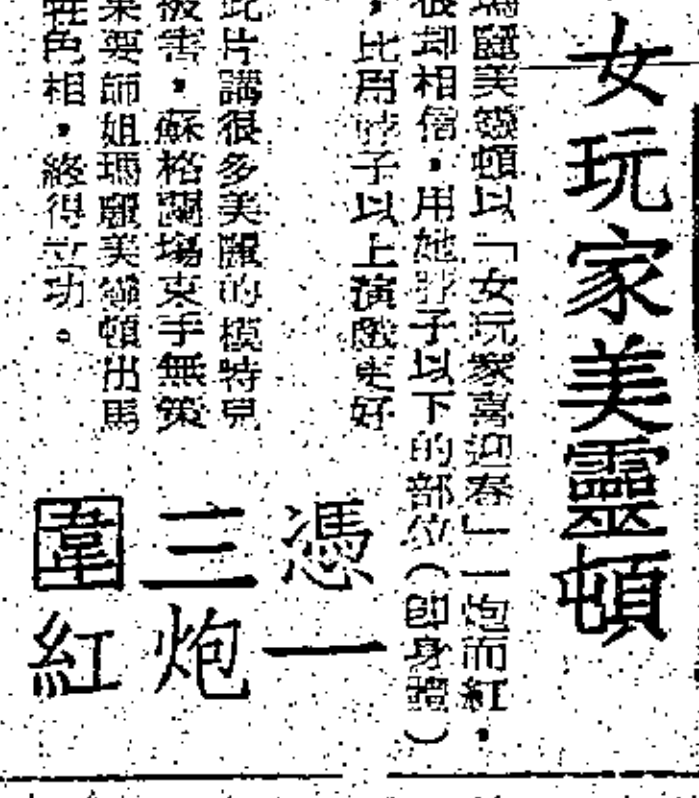 女玩家美靈頓
瑪麗美靈頓以「女玩家喜迎春」一炮而紅，
相信，用她脖子以下的部位（即身體）
，比用脖子以上演戲更好
憑三圍
一炮紅
此片講很多美麗的模特兒
被害，蘇格蘭場束手無策
果要師姐瑪麗美靈頓出馬
牲色相，終得立功。